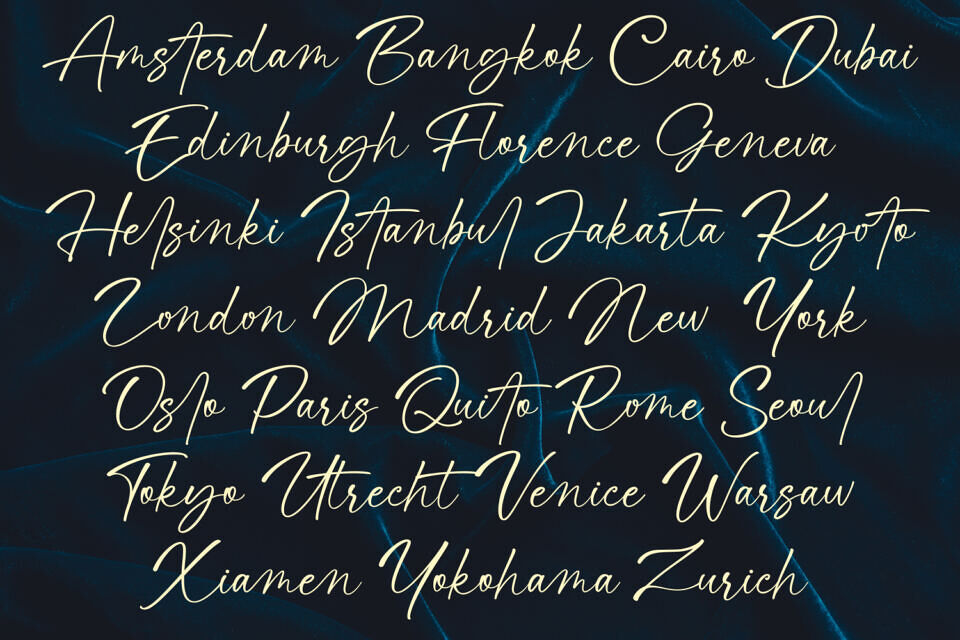 Amsterdam Bangkok Cairo Dubai
Edinburgh Florence Geneva
Helsinki Istanbul Jakarta Kyoto
London Madrid New York
Oslo Paris Quito Rome Seoul
Tokyo Utrecht Venice Warsaw
Xiamen Yokohama Zurich